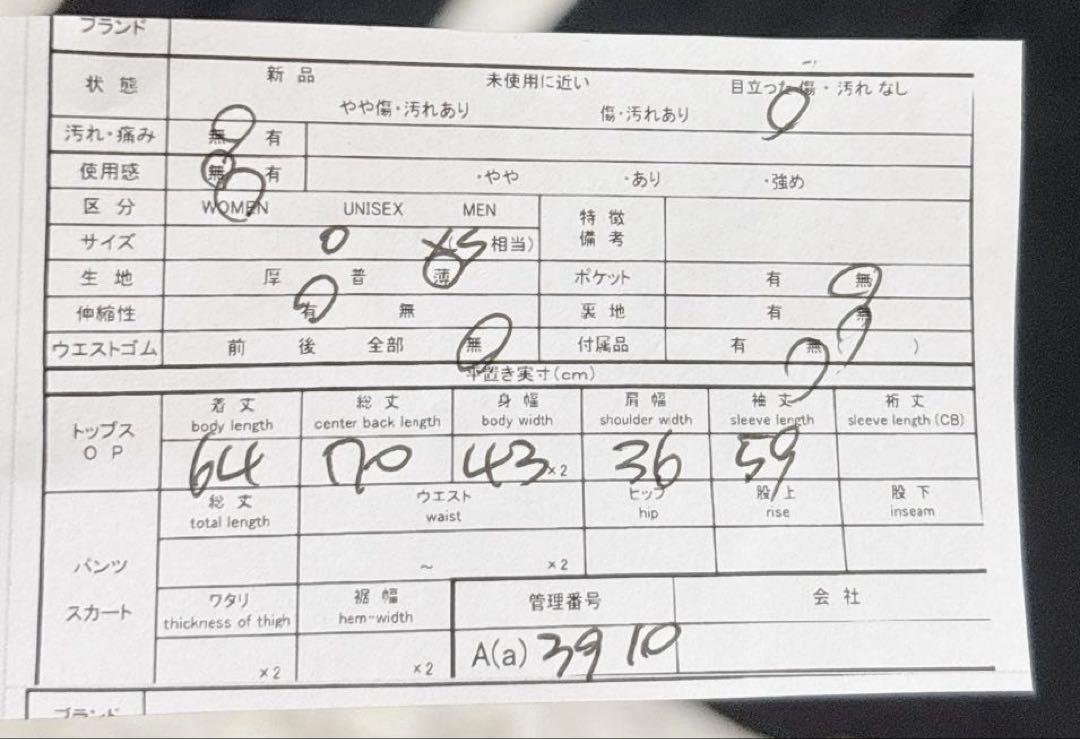 ブランド
状態 新品 未使用に近い 目立った傷・汚れ なし
やや傷・汚れあり 傷・汚れあり
汚れ・痛み 無 有
使用感 無 有 ・やや ・あり ・強め
区分 WOMEN UNISEX MEN 特徴
備考
サイズ 0 XS 相当)
生地 厚 普 薄 ポケット 有 無
伸縮性 有 無 裏地 有 無
ウエストゴム 前 後 全部 無 付属品 有 無 ( )
平置き実寸(cm)
トップス
OP
着丈 総丈 身幅 肩幅 袖丈 裄丈
body length center back length body width shoulder wdth sleeve length sleeve length (CB)
64 70 43 ×2 36 59
パンツ
スカート
総丈 ウエスト ヒップ 股上 股下
total length waist hip rise inseam
~ ×2
ワタリ 裾幅 管理番号 会社
thickness of thigh hem-width
×2 ×2 A(a) 3910
ブランド